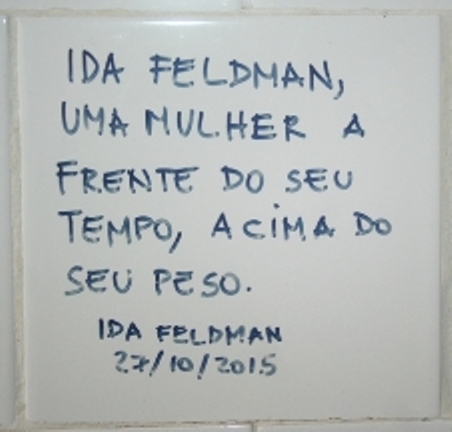 IDA FELDMAN,
UMA MULHER A
FRENTE DO SEU
TEMPO, ACIMA DO
SEU PESO.
IDA FELDMAN
27/10/2015